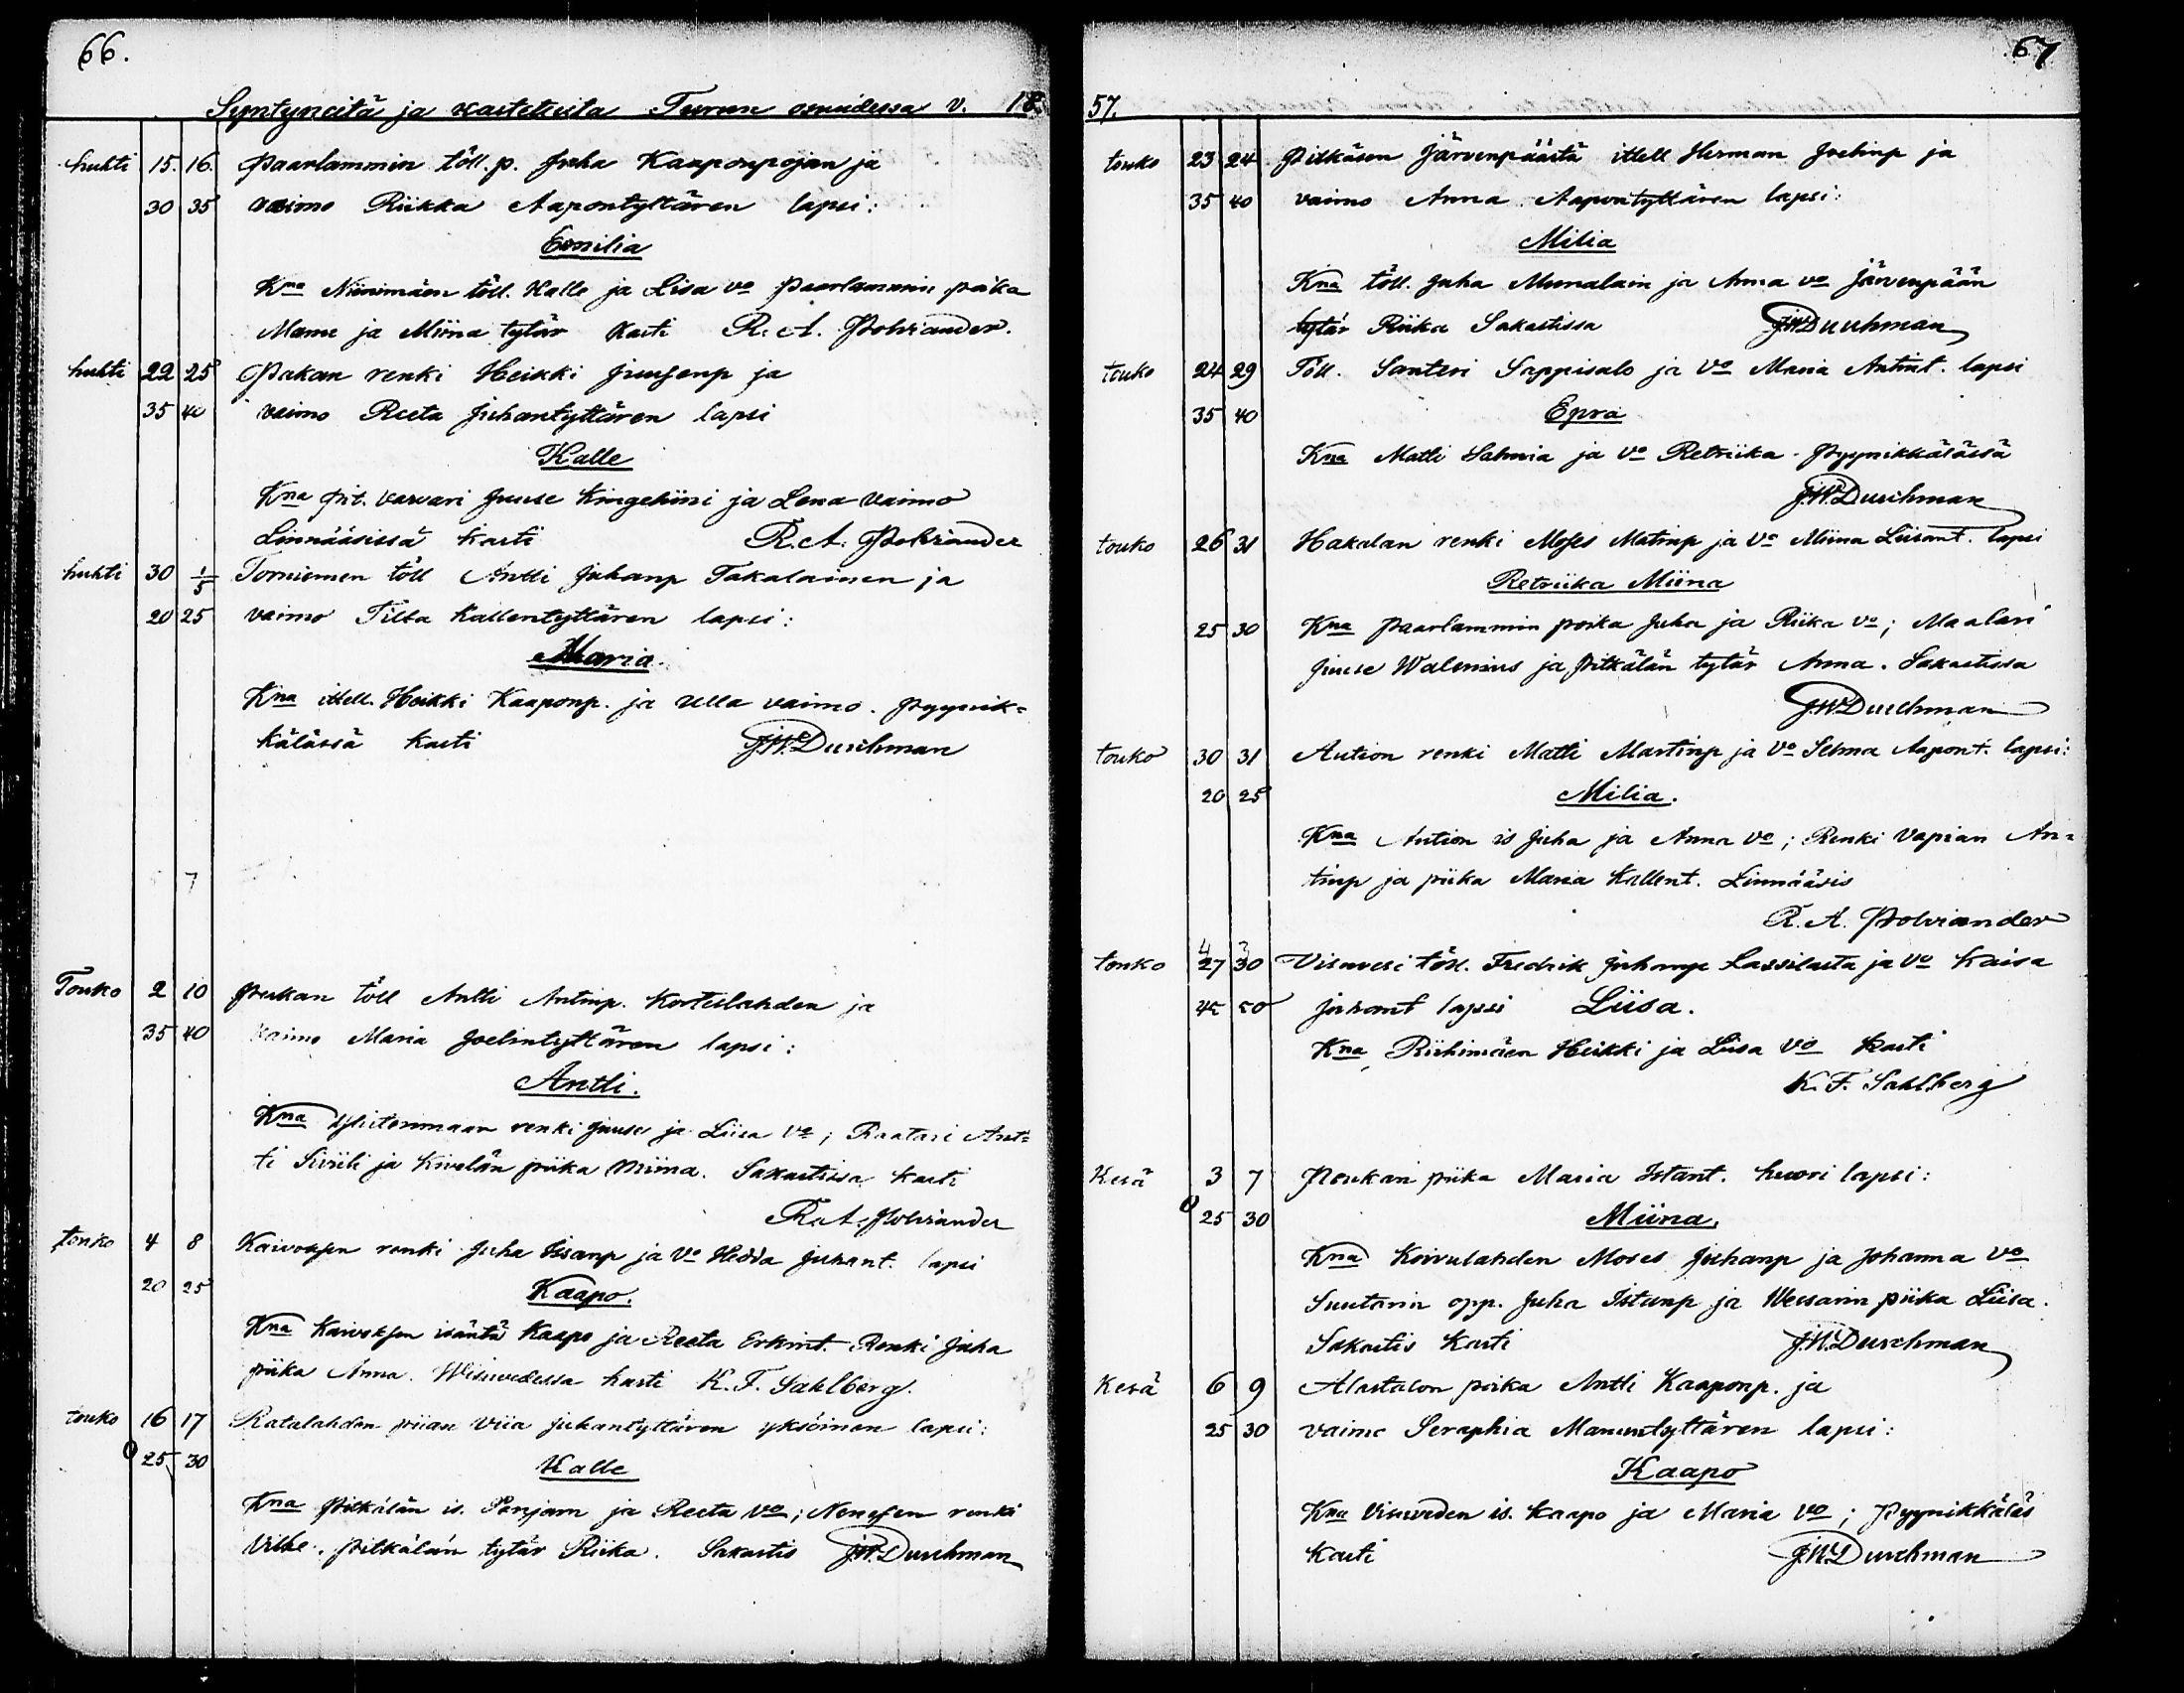 66.
Syntyneitä ja kastetuita Turun osuudessa v. 18
huhti 15. 16. Paarlammin töll. p. Juha Kaaponpojan ja
30 35 vaimo Riikka Aapontyttären lapsi:
Emilia
Kna Niinimäen töll. Kalle ja Lisa vo Paarlammin poika
Manu ja Miina tytär kasti R. A. Polviander.
huhti 22 25 Pakan renki Heikki Juusenp ja
35 40 vaimo Reeta Juhantyttären lapsi
Kalle
Kna pit. varvari Juuse Kingeliini ja Lena vaimo
Linnääsissä kasti R. A. Polviander
huhti 30 1/5 Torniemen töll Antti Juhanp Takalainen ja
20 25 vaimo Tilta Kallentyttären lapsi:
Maria.
Kna ittell. Heikki Kaaponp. ja Ulla vaimo. Pyynik=
kälässä kasti J.W. Durchman
7
Touko 2 10 Peukan töll Antti Antinp. Korteslahden ja
35 40 vaimo Maria Joelintyttären lapsi:
Antti.
Kna renki Juuse ja Liisa vo; Raatari Ant=
ti Siviili ja Kivelän piika Miina. Sakastissa kasti
R. A. Polviander
touko 4 8 Kaivoksen renki Juha Iisanp ja Vo Hedda Juhant. lapsi
20 25 Kaapo.
Kna Kaivoksen isäntä Kaapo ja Reeta Erkint. Renki Juha
piika Anna. Wisuvedessa kasti K. F. Sahlberg.
touko 16 17 Ratalahden piian Viia Juhantyttären yksöinen lapsi:
0 25 30 Kalle
Kna Pitkälän is. Penjam ja Reeta vo; renki
Ville. Pitkälän tytär Riika. Sakastis J.W. Durchman
67
57.
touko 23 24 Pitkäsen Järvenpäästä ittell Herman Joelinp ja
35 40 vaimo Anna Aapontyttären lapsi:
Milia
Kna töll. Juha Munalain ja Anna vo Järvenpään
tytär Riika Sakastissa J.W. Durchman
touko 24 29 Töll. Santeri Sappisalo ja Vo Maria Antint. lapsi
35 40 Epra
Kna Matti Salmia ja vo Retriika. Pyynikkälässä
J.W. Durchman
touko 26 31 Hakalan renki Moses Matinp ja Vo Miina Liisant. lapsi
Retriika Miina
25 30 Kna Paarlammin poika Juha ja Riika vo; Maalari
Juuse Walenius ja Pitkälän tytär Anna. Sakastissa
J.W. Durchman
touko 30 31 Aution renki Matti Martinp ja Vo Selma Aapont. lapsi:
20 25 Milia.
Kna Aution is Juha ja Anna Vo; Renki Vapian An=
tinp ja piika Maria Kallent. Linnääsis
R. A. Polviander
4 3
touko 27 30 Visuvesi töll. Fredrik Juhanp Lassilasta ja vo Kaisa
45 50 Juhant lapsi Liisa.
Kna Riihimäen Heikki ja Liisa Vo Kasti
K. F. Sahlberg
Kesä 3 7 Peukan piika Maria Istant. huori lapsi:
0 25 30 Miina.
Kna Koivulahden Moses Juhanp ja Johanna vo
Suutarin opp. Juha Istanp ja Wessarin piika Liisa.
Sakastis Kasti J.W. Durchman
Kesä 6 9 Alastalon poika Antti Kaaponp. ja
25 30 vaimo Seraphia Manuntyttären lapsi:
Kaapo
Kna Visuveden is. Kaapo ja Maria Vo; Pyynikkäläs
Kasti J.W. Durchman